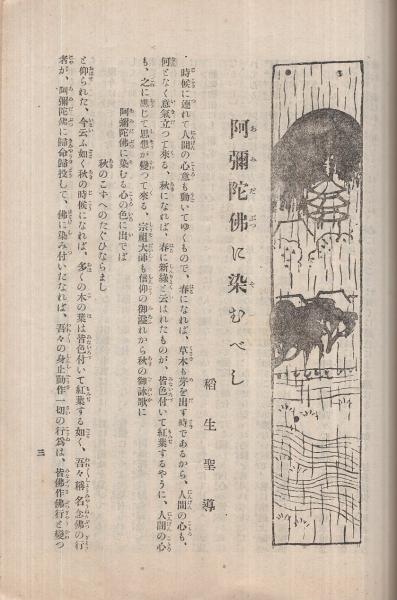 阿彌陀佛に染むべし
稻生聖導
時候に連れて人間の心意も動いてゆくもので、春になれば、草木も芽を出す時であるから、人間の心も、
何となく意氣立つて來る、秋になれば、春に新綠と云はれたものが、皆色付いて紅葉するやうに、人間の心
も、之に應じて思想が變つて來る、宗祖大師も信仰の御溢れから秋の御詠歌に
阿彌陀佛に染むる心の色に出でば
秋のこずへのたぐひならまし
と仰られた、今云ふ如く秋の時候になれば、多くの木の葉は皆色付いて紅葉する如く、吾々稱名念佛の行
者が、阿彌陀佛に歸命歸投して、佛に染み付いだなれば、吾々の身止動作一切の行爲は、皆佛作佛行と變つ
三